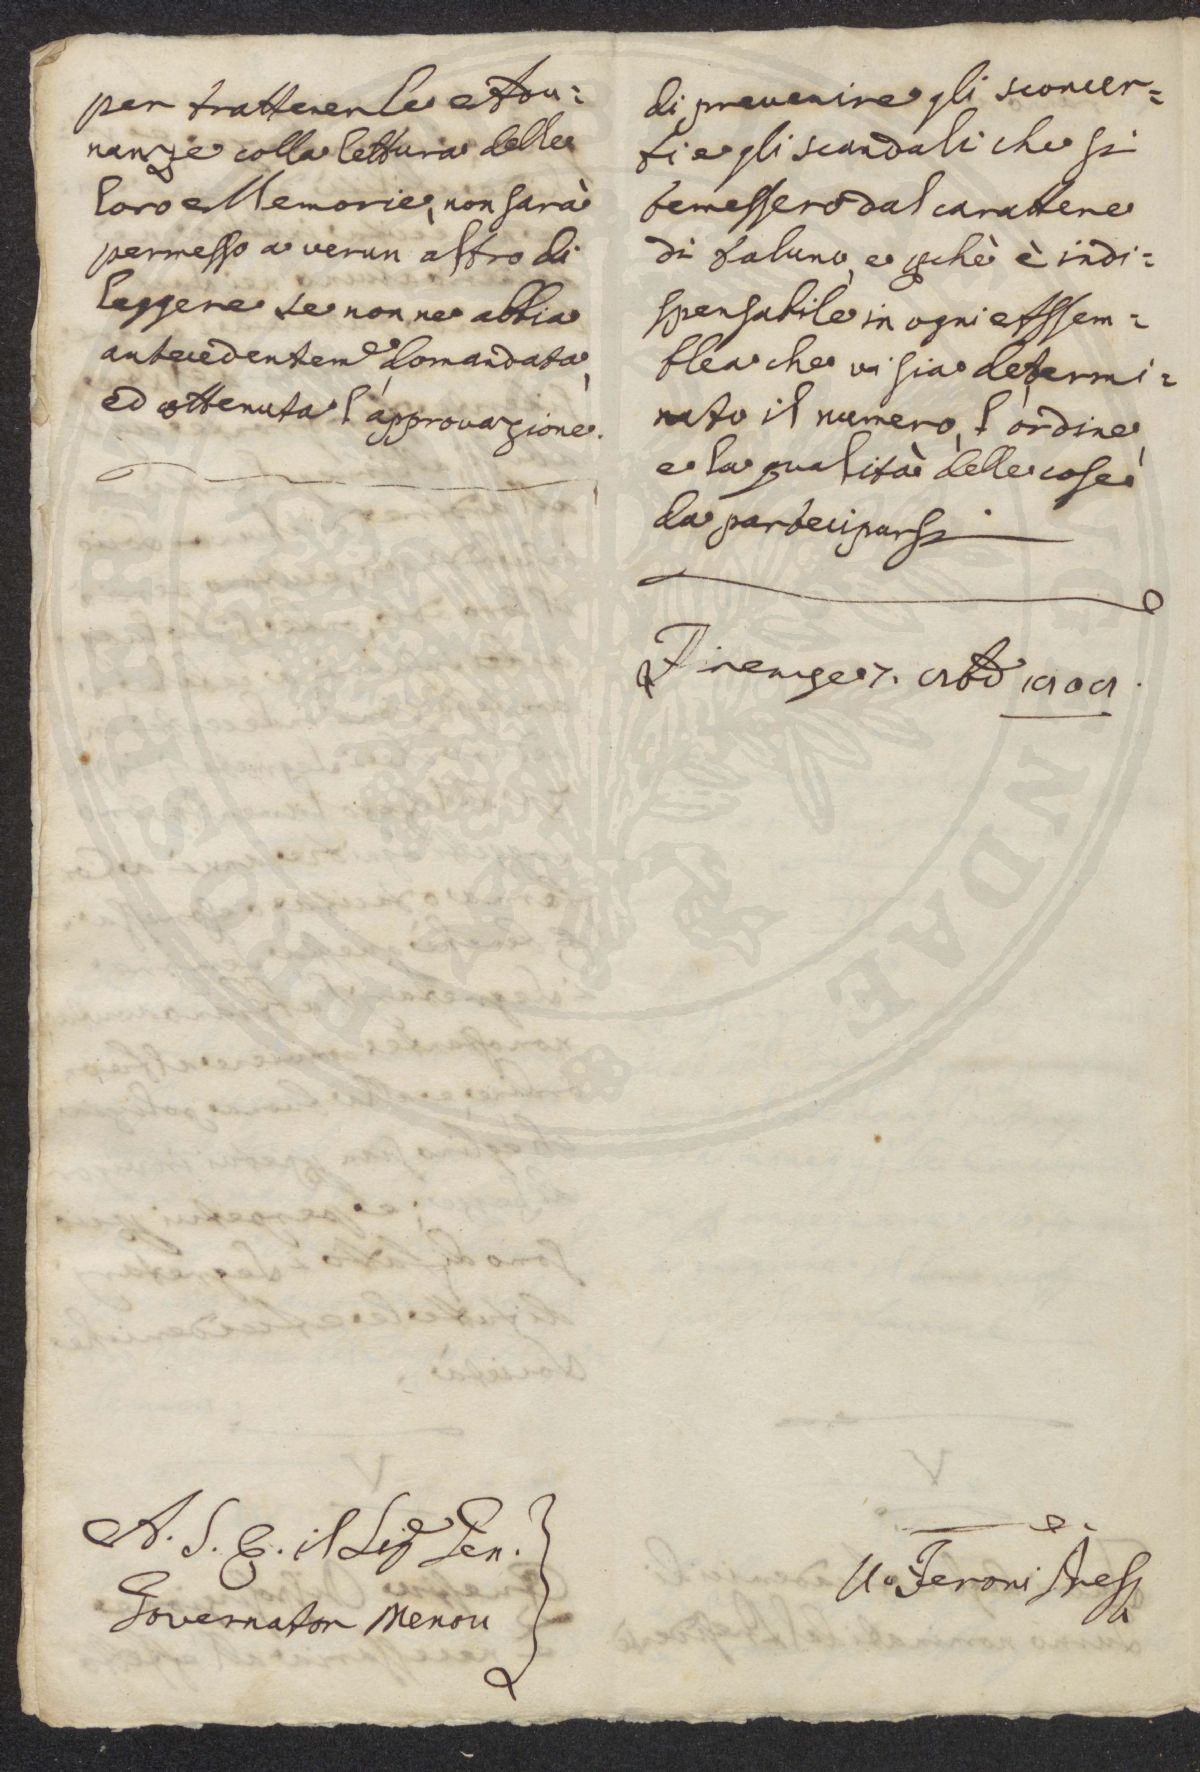 per trattener le Adu=
nanze colla lettura delle
loro Memorie, non sarà
permesso a verun altro di
leggere se non ne abbia
antecedentem.e domandata,
ed ottenuta l'approvazione.
di prevenire gli sconcer=
ti e gli scandali che si
temessero dal carattere
di taluno, e pchè è indi=
spensabile in ogni Assem=
blea che vi sia determi=
nato il numero, l'ordine,
e la qualità delle cose
da parteciparsi
Firenze 7.
A. S. E. il Sig.e Gen.
Governator Menou
U. Feroni Presid